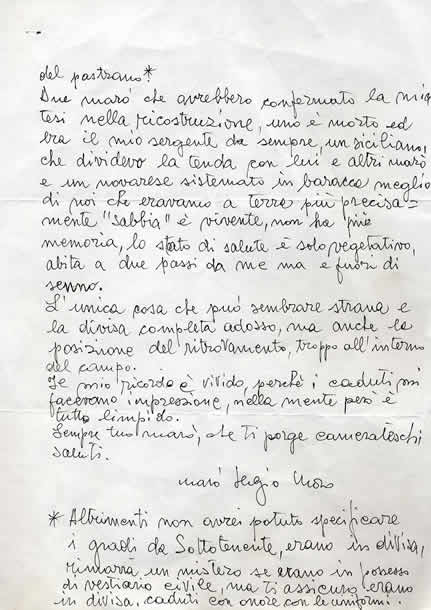 del pastrano*
Due marò che avrebbero confermato la mia
tesi nella ricostruzione, uno è morto ed
era il mio sergente da sempre, un siciliano,
che dividevo la tenda con lui e altri marò
e un novarese sistemato in baracca meglio
di noi che eravamo a terra più precisa=
mente "Sabbia" è vivente, non ha più
memoria, lo stato di salute è solo vegetativo,
abita a due passi da me ma e fuori di
senno.
L'unica cosa che può sembrare strana e
la divisa completa adosso, ma anche la
posizione del ritrovamento, troppo all'interno
del campo.
Il mio ricordo è vivido, perchè i caduti mi
facevano impressione, nella mente però è
tutto limpido.
Sempre tuo marò, che ti porge camerateschi
saluti.
marò Sergio
* Altrimenti non avrei potuto specificare
i gradi da Sottotenente, erano in divisa,
rimarrà un mistero se erano in possesso
di vestiario civile, ma ti assicuro erano
in divisa, caduti con onore con le uniformi.